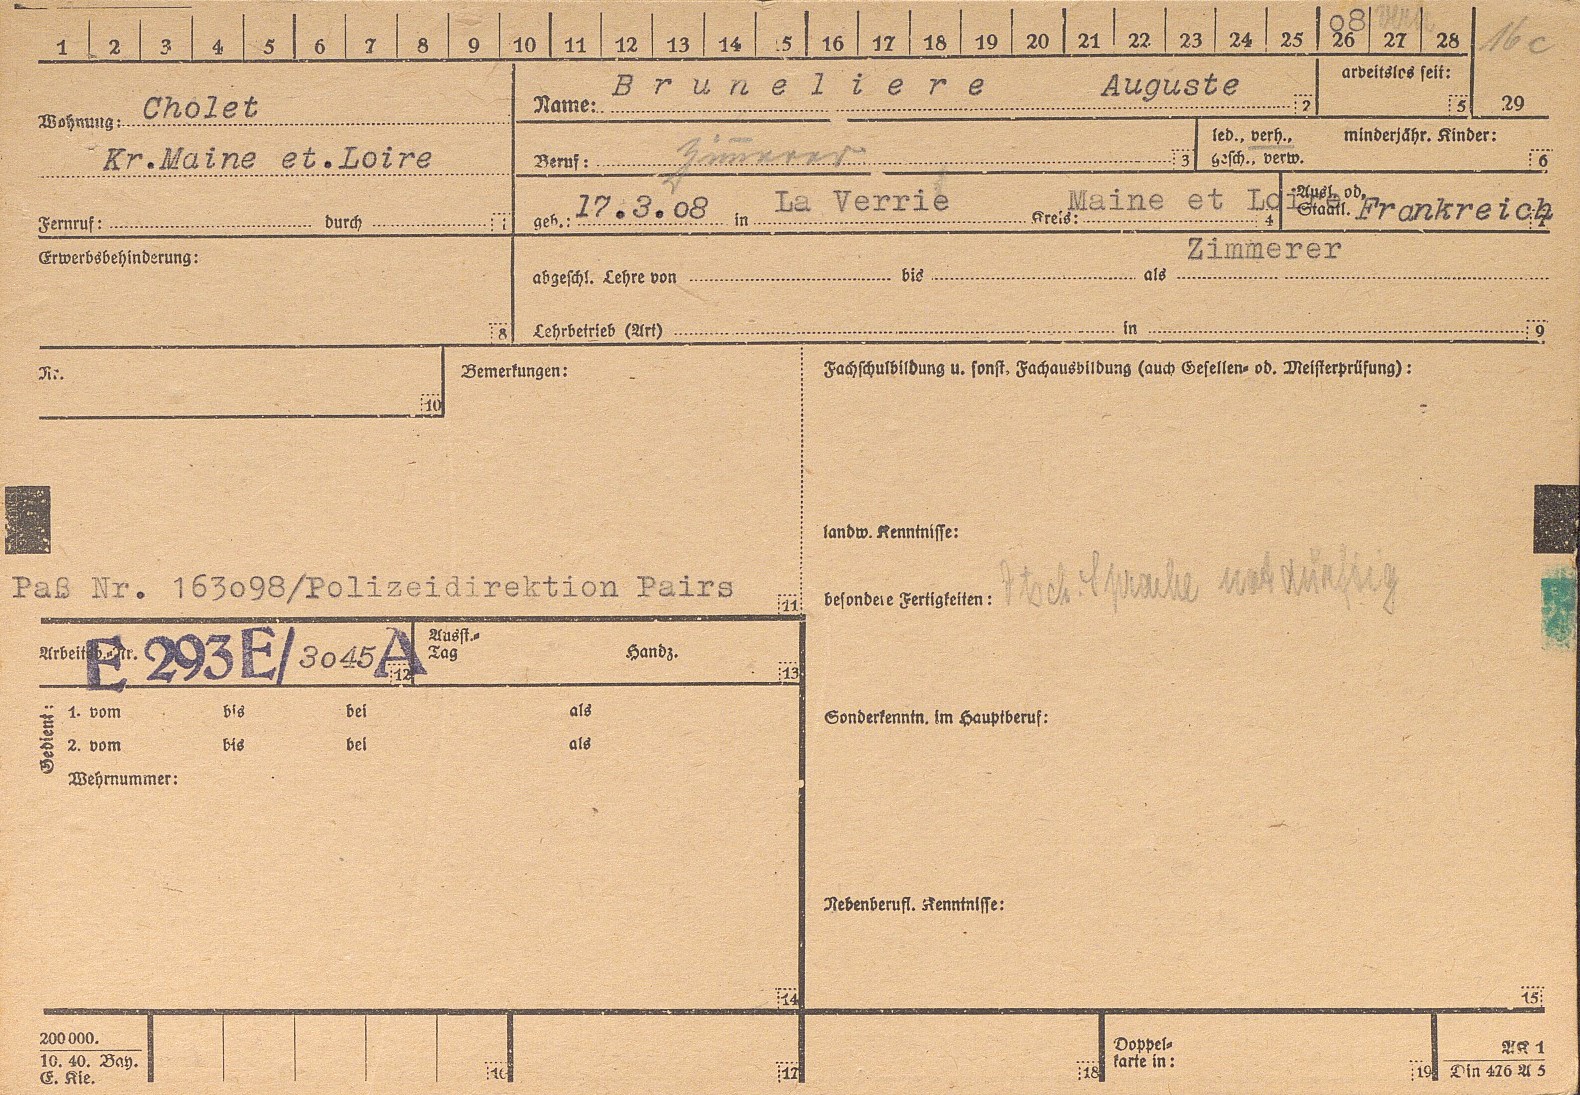 1 2 3 4 5 6 7 8 9 10 11 12 13 14 15 16 17 18 19 20 21 22 23 24 25 26 27 28
08 verh 16 c
Wohnung: Cholet
Kr.Maine et.Loire
Fernruf: durch 1
Name: Bruneliere Auguste 2
arbeitslos seit: 5 29
Beruf: Zimmerer 3
led., verh., gesch., verw.
minderjähr. Kinder: 6
geb.: 17.3.08 in La Verrie Kreis: Maine et Loire 4
Ausl. od. Staatl. Frankreich 7
Erwerbsbehinderung: 8
Zimmerer
abgeschl. Lehre von bis als
Lehrbetrieb (Art) in 9
Nr. 10
Bemerkungen:
Fachschulbildung u. sonst. Fachausbildung (auch Gesellen- od. Meisterprüfung):
landw. Kenntnisse:
Paß Nr. 163o98/Polizeidirektion Pairs 11
besondere Fertigkeiten: Dtsch. Sprache notdürftig
Arbeitsb.-Nr. E 293E/3o45A 12
Ausst.-Tag Handz. 13
Gedient:
1. vom bis bei als
2. vom bis bei als
Wehrnummer:
Sonderkenntn. im Hauptberuf:
Nebenberufl. Kenntnisse:
14 15
200 000.
10. 40. Bay.
E. Kie.
16 17 18
Doppel-
karte in: 19
AK 1
Din 476 A 5